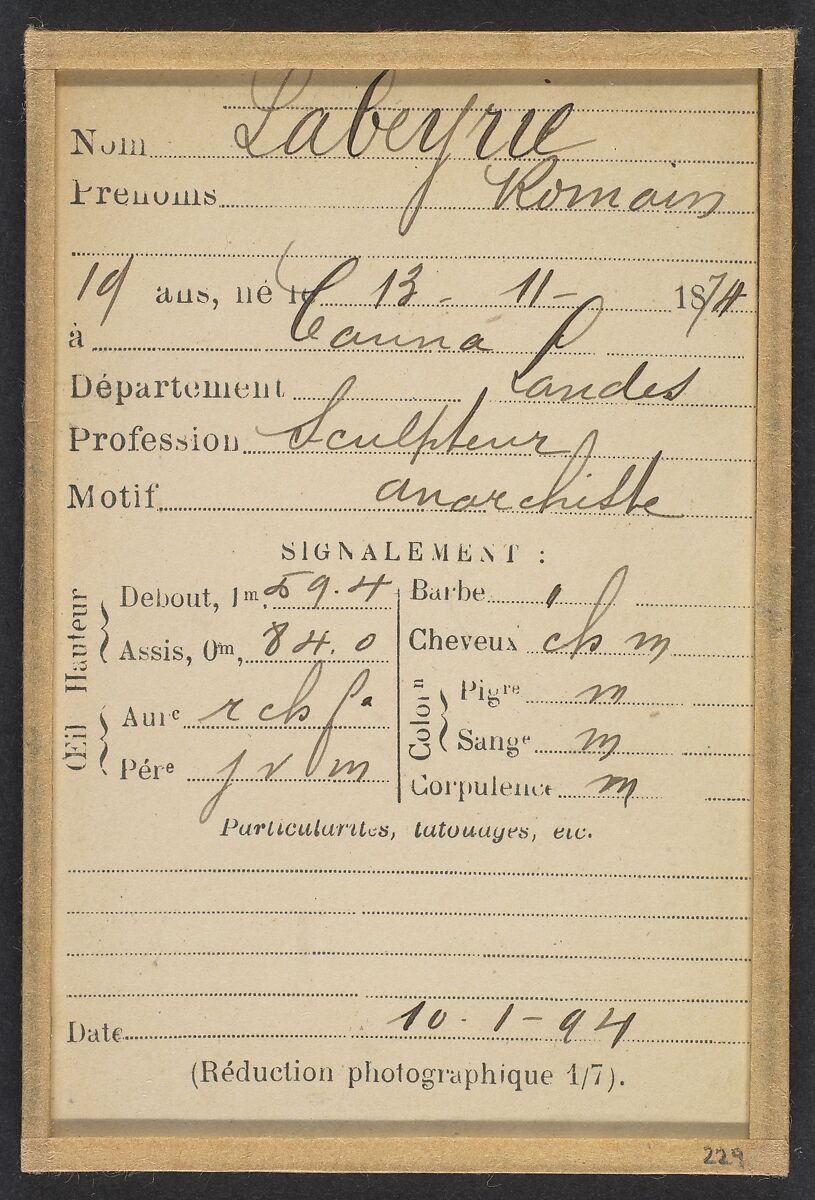 Nom Labeyrie
Prénoms Romain
19 ans, né le 13 - 11 - 1874
à Cauna
Département Landes
Profession Sculpteur
Motif anarchiste
SIGNALEMENT :
Hauteur
Debout, 1m, 59.4
Assis, 0m, 84.0
Œil
Aure r ch f a
Pére j v m
Barbe
Cheveux ch m
Colorn
Pigre m
Sange m
Corpulence m
Particularités, tatouages, etc.
Date 10 - 1 - 94
(Réduction photographique 1/7).
229